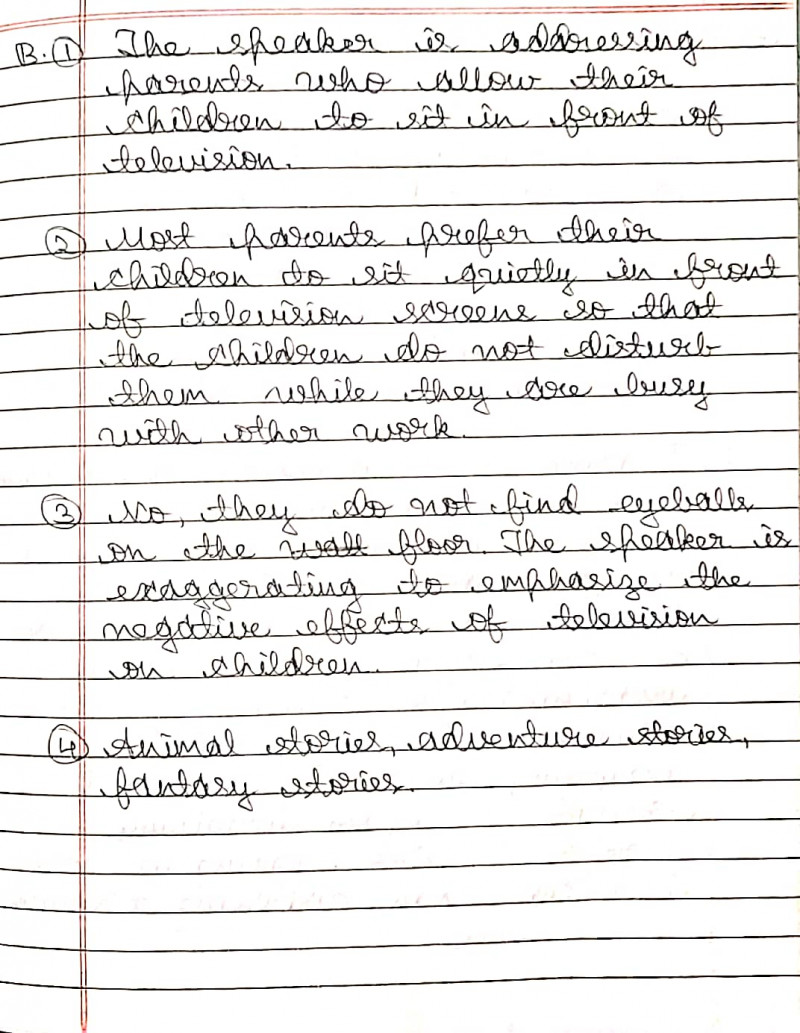 B. ① The speaker is addressing
parents who allow their
children to sit in front of
television.
② Most parents prefer their
children to sit quietly in front
of television screens so that
the children do not disturb
them while they are busy
with other work.
③ No, they do not find eyeballs
on the wall floor. The speaker is
exaggerating to emphasize the
negative effects of television
on children.
④ Animal stories, adventure stories,
fantasy stories.